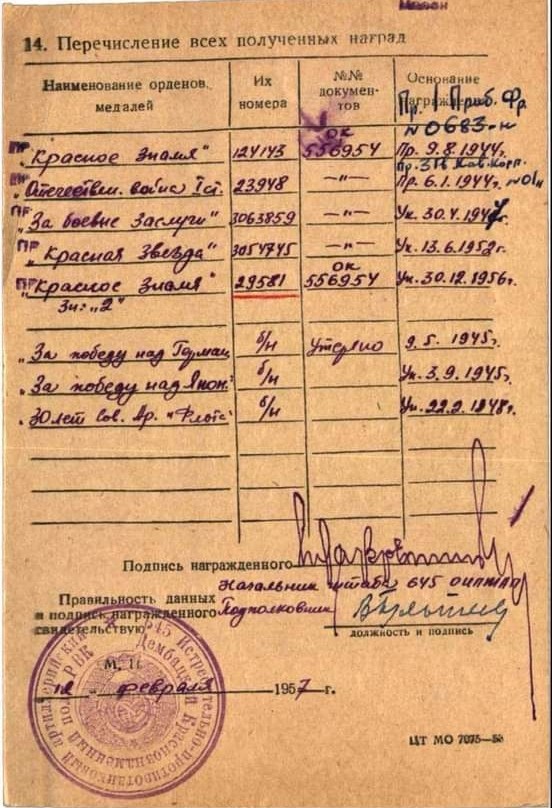 14. Перечисление всех полученных наград
Наименование орденов, медалей
Их номера
№№ документов
Основание награждения
Пр. / Приб. Фр.
N0683-н
ПР "Красное Знамя" 124143 ОК 556954 Пр. 9.8.1944г.
Пр. 3 Гв. Кав. Корп.
"Отечествен. война I ст. 23948 —"— Пр. 6.1.1944г. №01/н
ПР "За боевые заслуги" 3063859 —"— Ук. 30.4.1947г.
ПР "Красная Звезда" 3054745 —"— Ук. 13.6.1952г.
ПР "Красное Знамя" 29581 ОК 556954 Ук. 30.12.1956г.
Зн. "2"
"За победу над Герман. б/н Утеряно 9.5.1945г.
"За победу над Япон." б/н Ук. 3.9.1945г.
"30 лет Сов. Ар. и Флота" б/н Ук. 22.2.1948г.
Подпись награжденного
Начальник штаба 645 оиптап
Правильность данных
и подпись награжденного Подполковник
свидетельствую
должность и подпись
М. П.
12 февраля 1957 г.
645 Истребительно-противотанковый артиллерийский Дембицкий Краснознаменный полк РВК
ЦТ МО 7075—56